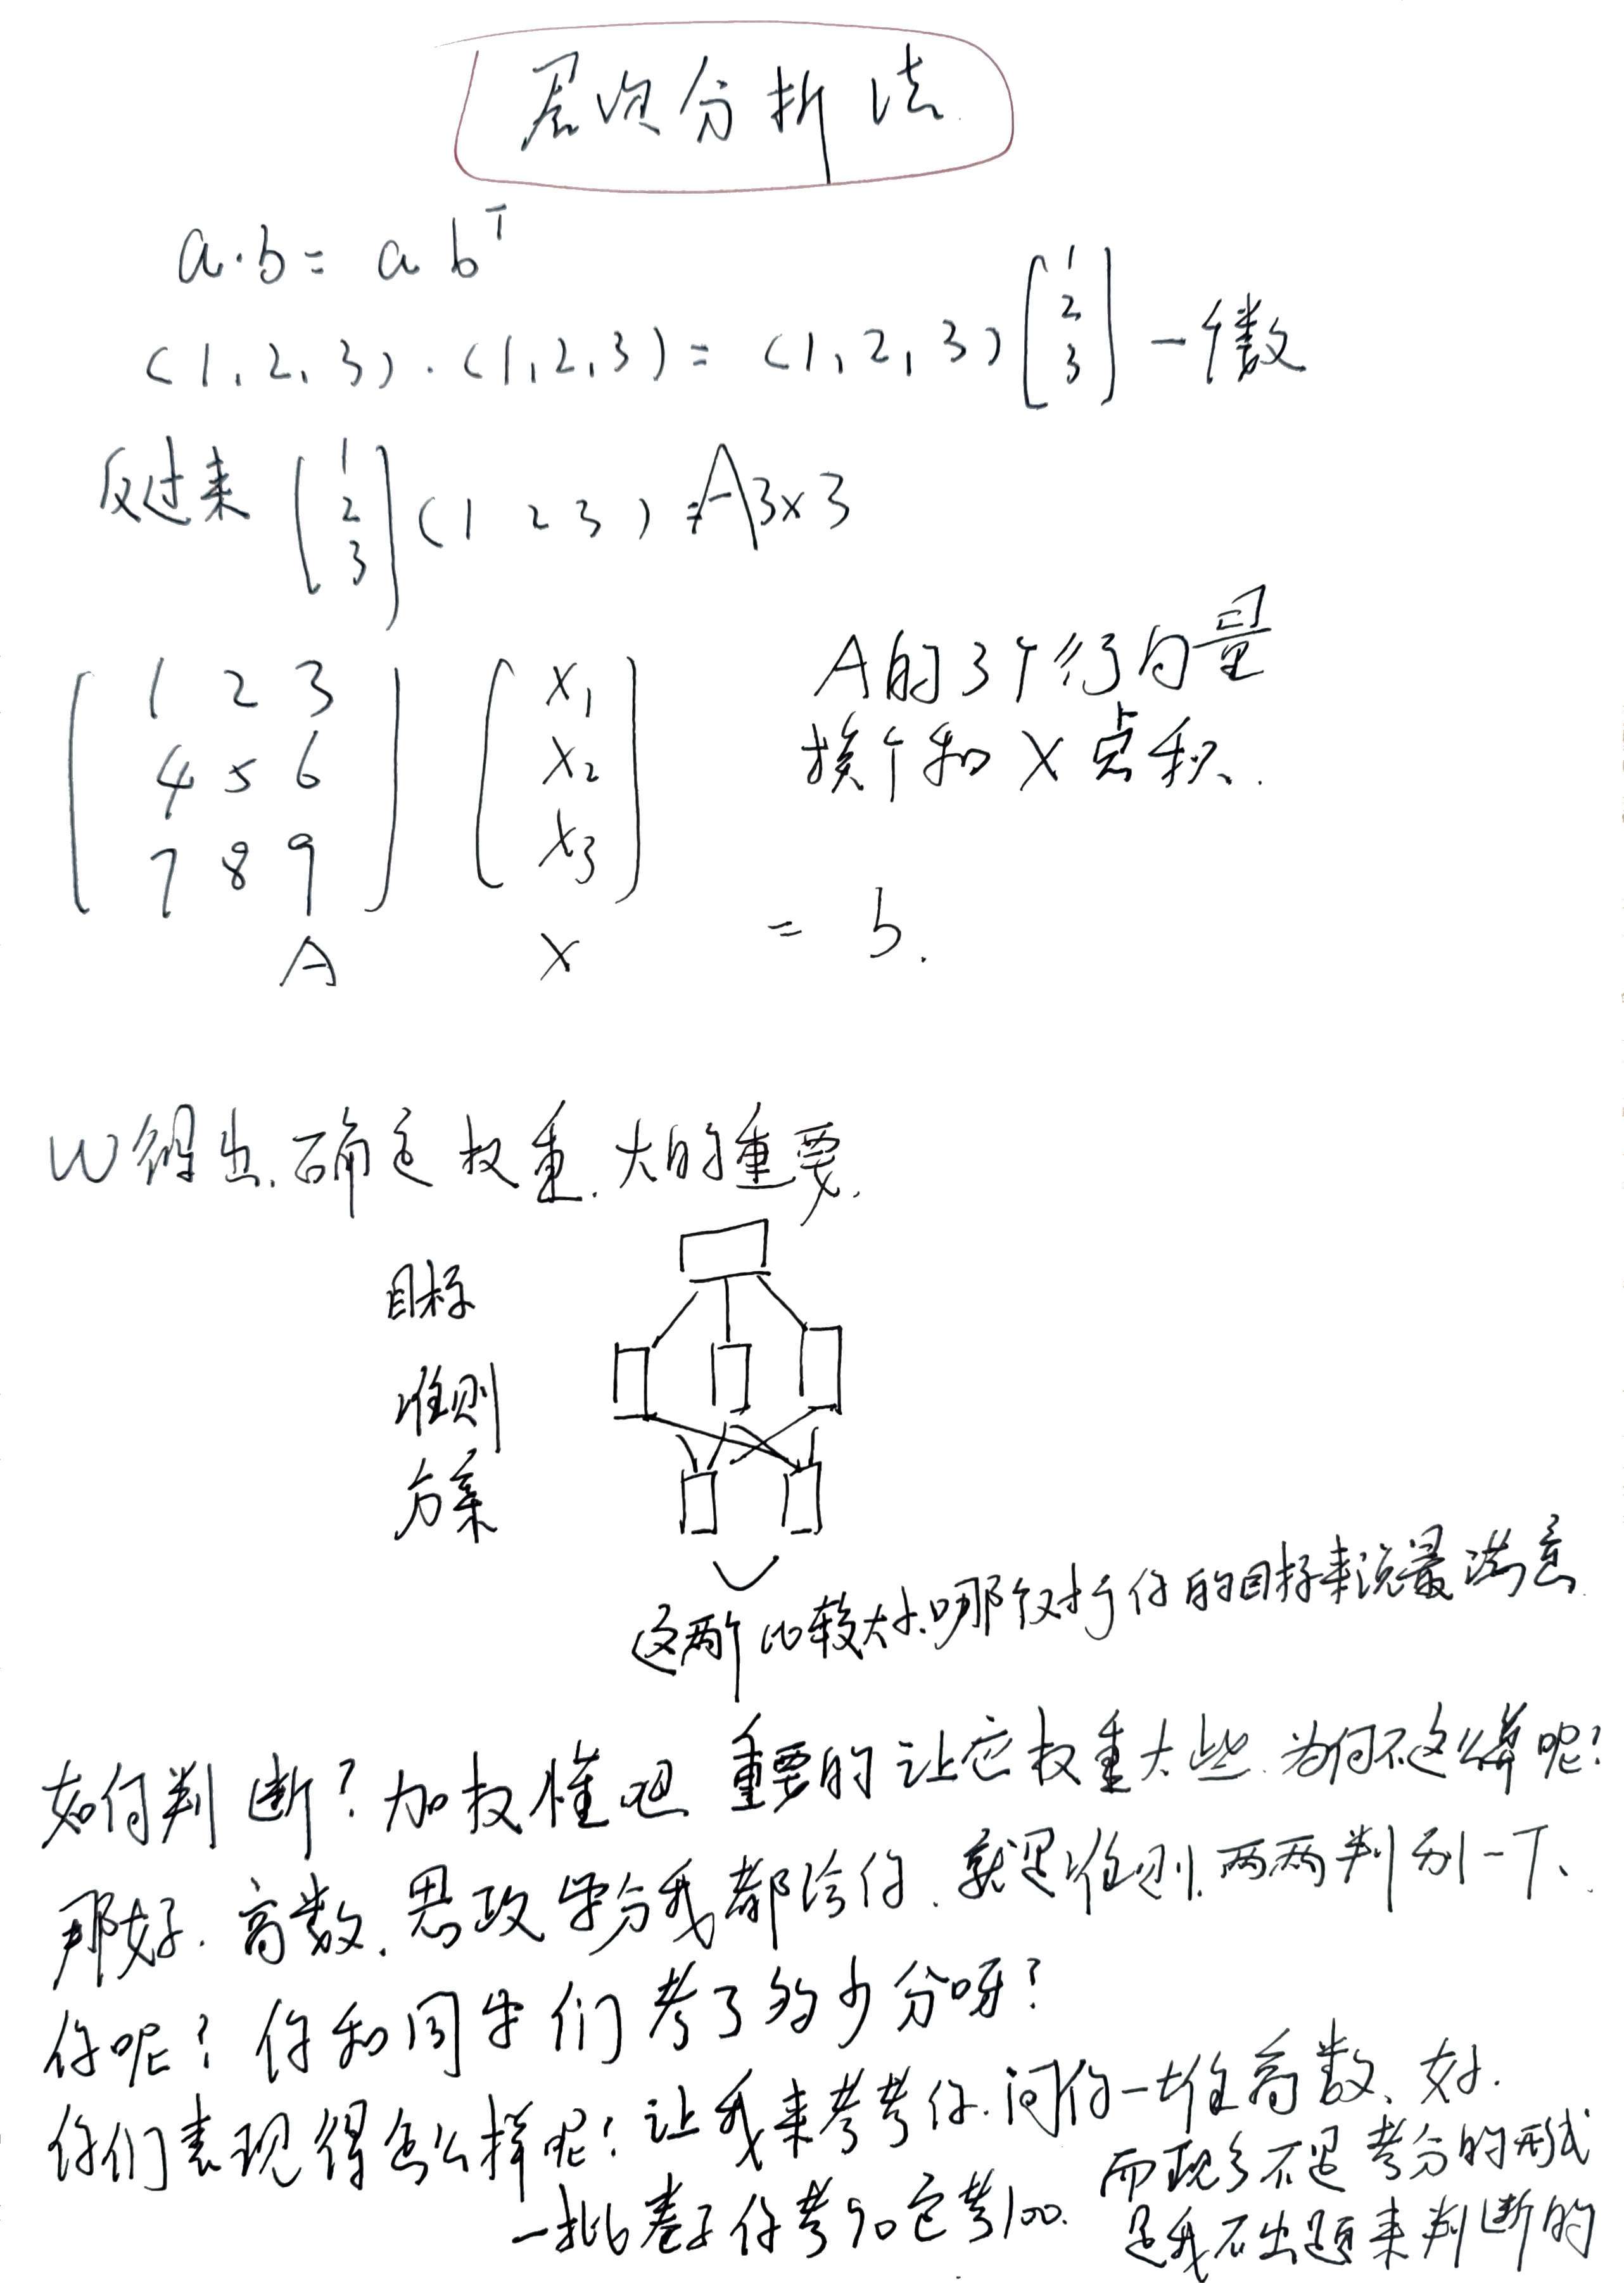 层次分析法
a·b = a b^T
(1, 2, 3) · (1, 2, 3) = (1, 2, 3) [1 2 3] 一个数
反过来 [1 2 3] (1 2 3) = A3×3
1 2 3 x1
4 5 6 x2
7 8 9 x3
A x = b.
A的3个行向量
挨个和 X 点积.
W得出.确定权重.大的重要.
目标
准则
方案
这两个比较大小.哪个对于你的目标来说最满意
如何判断?加权懂吧 重要的让它权重大些.为何不这么算呢?
那好.高数.思政学分我都给你.就是准则.两两判别一下、
你呢?你和同学们考了多少分呀?
你们表现得怎么样呢?让我来考考你.问你一堆高数、好.
一批卷子你考90它考100.
而现实不是考分的形式
是我不出题来判断的